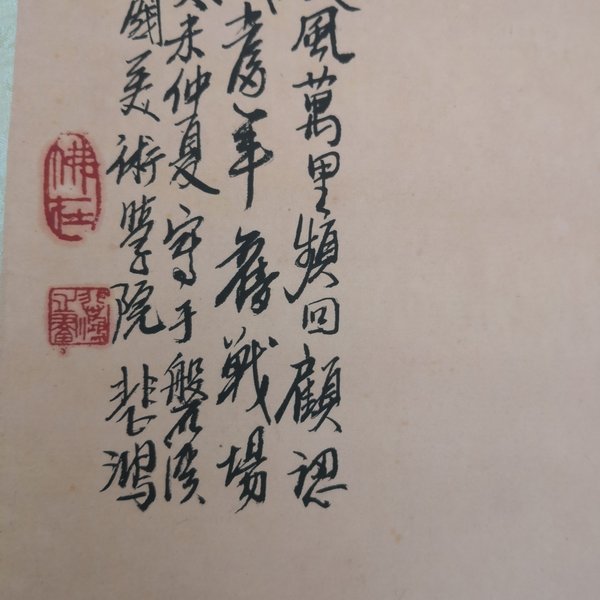 風萬里頻回顧認
當年舊戰場
未仲夏寫于磐溪
國美術學院悲鴻